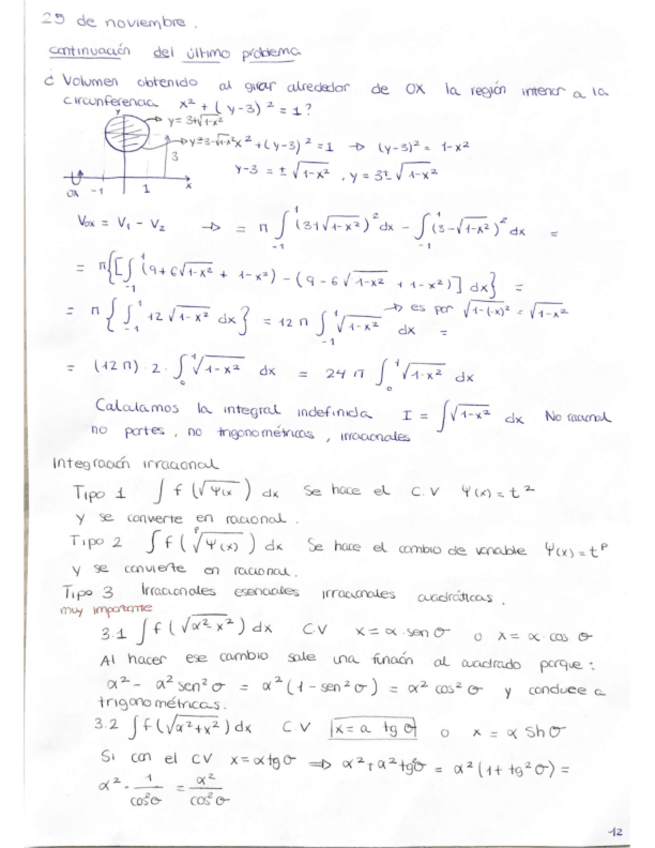 25 de noviembre.
continuación del último problema
¿ Volumen obtenido al girar alrededor de OX la región interior a la
circunferencia x² + (y-3)² = 1?
y
→ y = 3+√1-x²
→ y=3-√1-x² x² + (y-3)² = 1 → (y-3)² = 1-x²
3
y-3 = ± √1-x² , y = 3± √1-x²
OX -1 1 x
Vox = V₁ - V₂ → = π ∫₋₁¹ (3+√1-x²)² dx - ∫₋₁¹ (3-√1-x²)² dx =
= π{[∫₋₁¹ (9+6√1-x² + 1-x²) - (9-6√1-x² + 1-x²)] dx} =
= π { ∫₋₁¹ 12 √1-x² dx } = 12 π ∫₋₁¹ √1-x² dx = → es par √1-(-x)² = √1-x²
= (12π) · 2 · ∫₀¹ √1-x² dx = 24 π ∫₀¹ √1-x² dx
Calculamos la integral indefinida I = ∫ √1-x² dx No racional
no partes, no trigonométricas, irracionales
Integración irracional
Tipo 1 ∫ f (√Ψ(x) dx Se hace el C.V Ψ(x) = t²
y se converte en racional.
Tipo 2 ∫ f ( ᵖ√Ψ(x) ) dx Se hace el cambio de variable Ψ(x) = tᵖ
y se convierte en racional.
Tipo 3 Irracionales esenciales irracionales cuadráticas.
muy importante
3.1 ∫ f (√α²-x²) dx C.V x = α · sen σ o x = α · cos σ
Al hacer ese cambio sale una función al cuadrado porque:
α² - α² sen² σ = α² (1 - sen² σ) = α² cos² σ y conduce a
trigonométricas.
3.2 ∫ f(√α²+x²) dx C.V x = a tg σ o x = α Sh σ
Si con el CV x = α tg σ ⇒ α² + α² tg² σ = α² (1 + tg² σ) =
α² · 1/cos²σ = α²/cos²σ
12